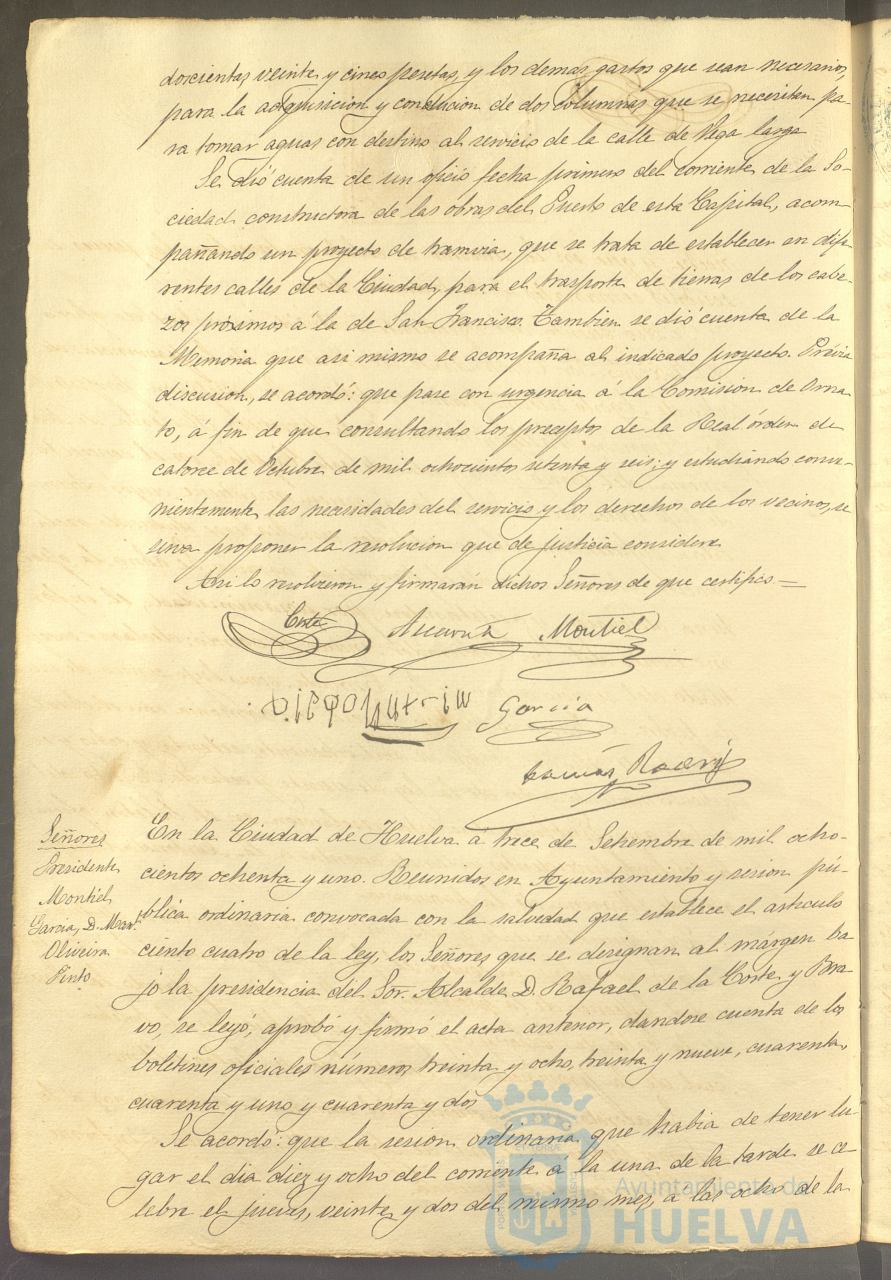 doscientas veinte y cinco pesetas, y los demas gastos que sean necesarios,
para la adquisicion y conducion de dos columnas que se necesitan pa-
ra tomar aguas con destino al servicio de la calle de Vega larga
Se dió cuenta de un oficio fecha primero del corriente de la So-
ciedad constructora de las obras del Puerto de esta Capital, acom-
pañando un proyecto de tramvia, que se trata de establecer en dife-
rentes calles de la Ciudad, para el trasporte de tierras de los cabe-
zos próximos á la de San Francisco. Tambien se dió cuenta de la
Memoria que asi mismo se acompaña al indicado proyecto. Prévia
discusion, se acordó: que pase con urgencia á la Comision de Orna-
to, á fin de que consultando los preceptos de la Real órden de
catorce de Octubre de mil ochocientos setenta y seis; y estudiando conve-
nientemente las necesidades del servicio y los derechos de los vecinos, se
sirva proponer la resolucion que de justicia considere
Asi lo resolvieron y firmarán dichos Señores de que certifico =
Corte Montiel
García
Señores
Presidente
Montiel
Garcia, D. Man.
Oliveira
Pinto
En la Ciudad de Huelva á trece de Setiembre de mil ocho-
cientos ochenta y uno. Reunidos en Ayuntamiento y sesion pú-
blica ordinaria convocada con la salvedad que establece el artículo
ciento cuatro de la ley, los Señores que se designan al márgen ba-
jo la presidencia del Sor. Alcalde D. Rafael de la Corte y Bra-
vo, se leyó, aprobó y firmó el acta anterior, dandose cuenta de los
boletines oficiales números treinta y ocho, treinta y nueve, cuarenta,
cuarenta y uno y cuarenta y dos
Se acordó: que la sesion ordinaria que habia de tener lu-
gar el dia diez y ocho del corriente á la una de la tarde se ce-
lebre el jueves, veinte y dos del mismo mes, a las ocho de la
Ayuntamiento de
HUELVA